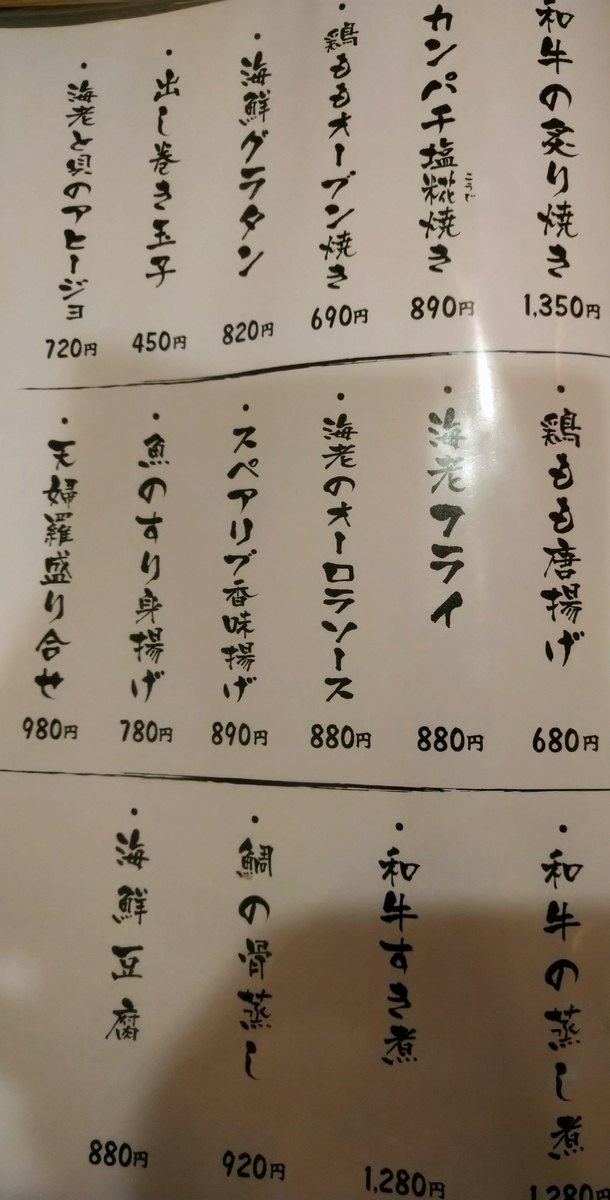 和牛の炙り焼き
1,350円
カンパチ塩糀焼き
こうじ
890円
・鶏ももオーブン焼き
690円
・海鮮グラタン
820円
・出し巻き玉子
450円
・海老と貝のアヒージョ
720円
・鶏もも唐揚げ
680円
・海老フライ
880円
・海老のオーロラソース
880円
・スペアリブ香味揚げ
890円
・魚のすり身揚げ
780円
・天婦羅盛り合せ
980円
・和牛の蒸し煮
1,280円
・和牛すき煮
1,280円
・鯛の骨蒸し
920円
・海鮮豆腐
880円